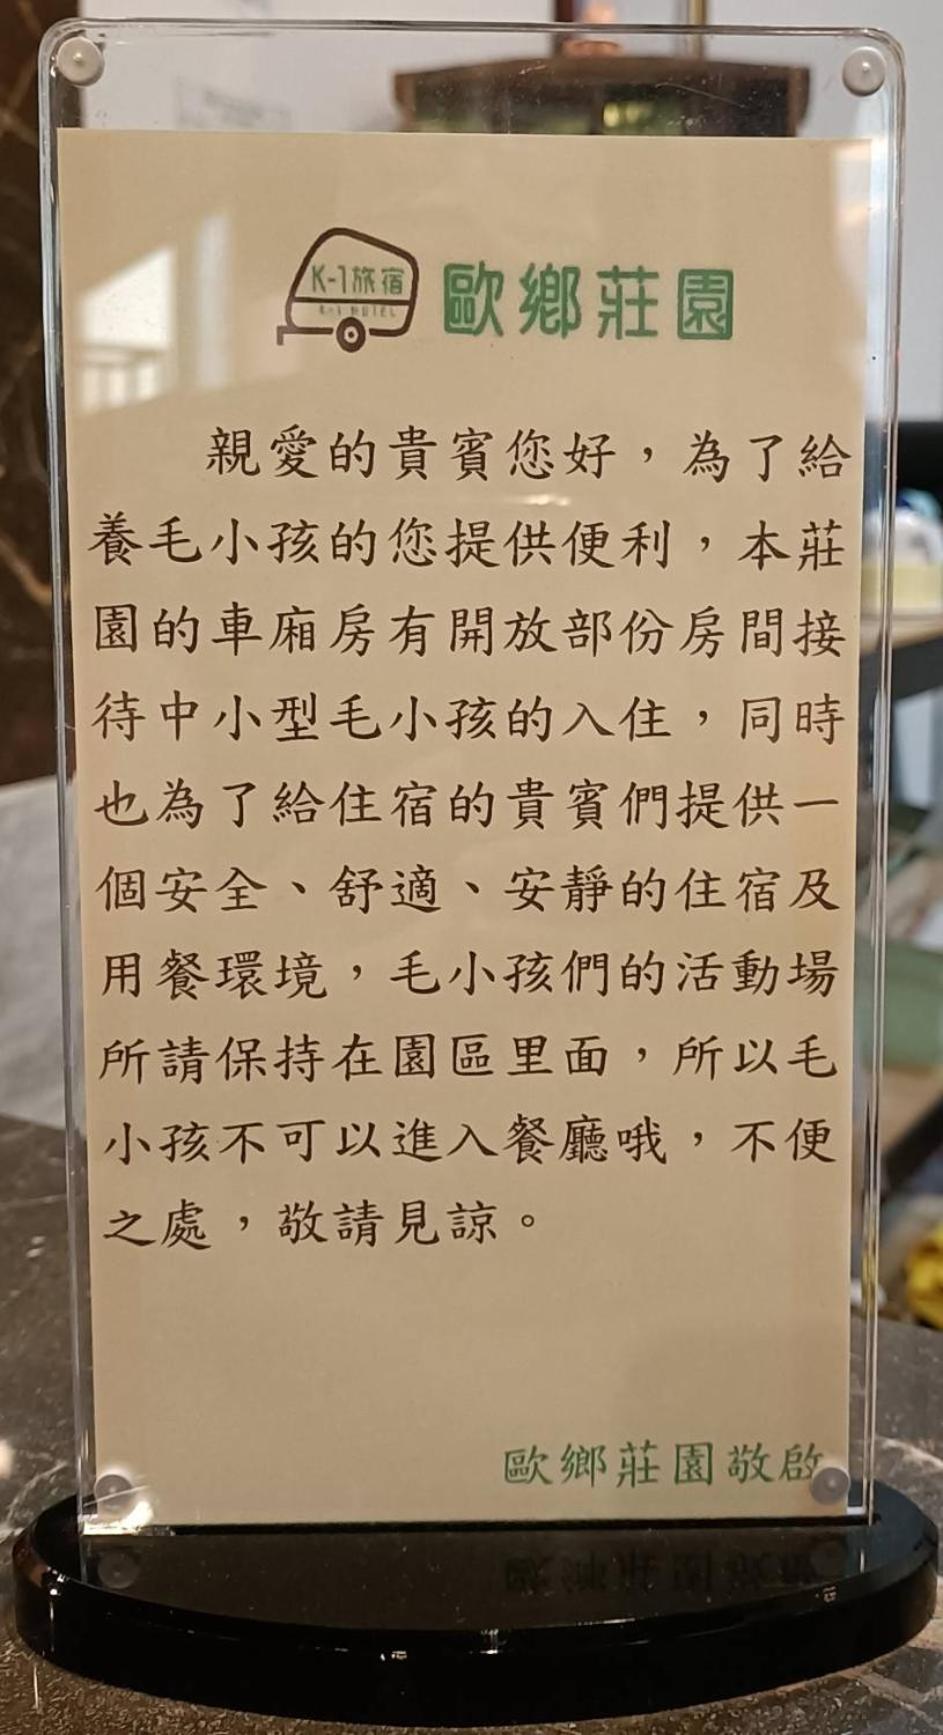 K-1旅宿
K-1 HOTEL
歐鄉莊園
親愛的貴賓您好，為了給
養毛小孩的您提供便利，本莊
園的車廂房有開放部份房間接
待中小型毛小孩的入住，同時
也為了給住宿的貴賓們提供一
個安全、舒適、安靜的住宿及
用餐環境，毛小孩們的活動場
所請保持在園區里面，所以毛
小孩不可以進入餐廳哦，不便
之處，敬請見諒。
歐鄉莊園敬啟